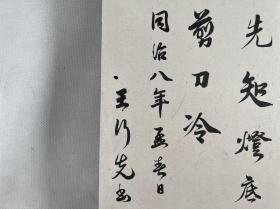 先知燈底
剪刀冷
同治八年孟春日
王行先書